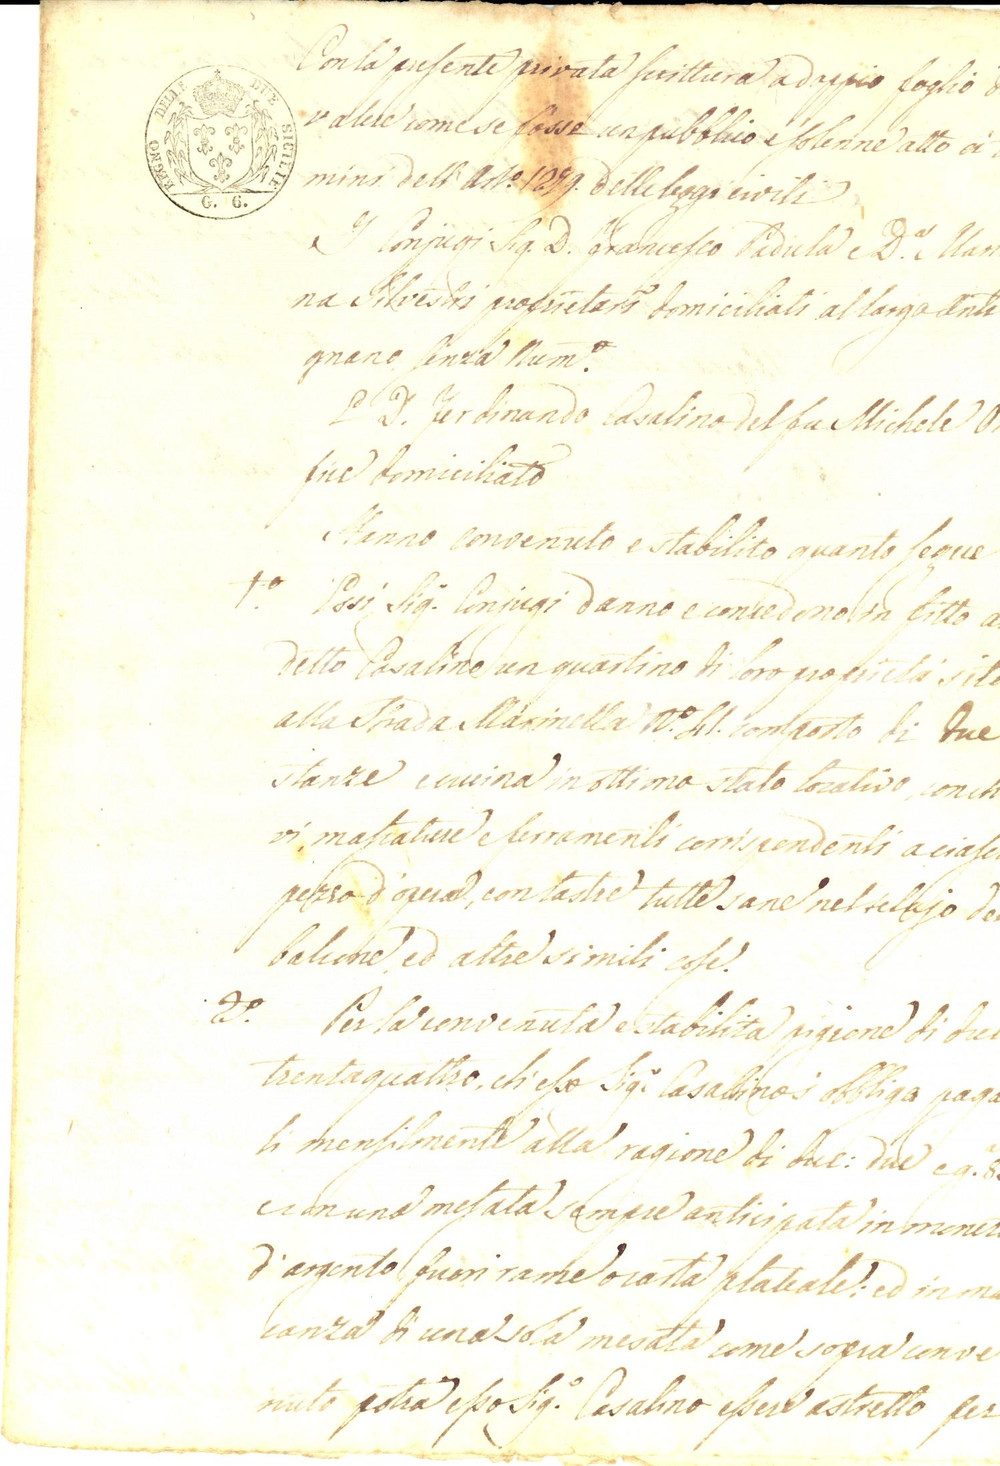 REGNO DELLE DUE SICILIE
G. G.
Con la presente privata scrittura a doppio foglio
valere come se fosse un pubblico e solenne atto ai
mini dell' Art.o 1279. delle leggi civili
I Conjugi Sig. D. Francesco Padula e D.a Mari
na Silvestri proprietarj domiciliati al largo Ante
gnano senza Num.o
E D. Ferdinando Casalino del fu Michele
domiciliato
Hanno convenuto e stabilito quanto segue
1.o Essi Sig.i Conjugi danno e concedono in fitto a
detto Casalino un quartino di loro proprietà sito
alla Strada Marinella N.o 41. composto di due
stanze e cucina in ottimo stato locativo, con chi
vi, mascature e ferramenti corrispondenti a ciasc
pezzo d'opera, con lastre tutte sane nel telajo del
balcone, ed altre simili cose.
2.o Per la convenuta e stabilita pigione di duc
trentaquattro, che esso Sig.r Casalino si obbliga paga
li mensilmente alla ragione di duc: due e g.a 83
e con una mesata sempre anticipata in moneta
d'argento fuori rame o carta plateale: ed in ma
canza di una sola mesata come sopra conve
nuto potrà esso Sig.r Casalino essere astretto per